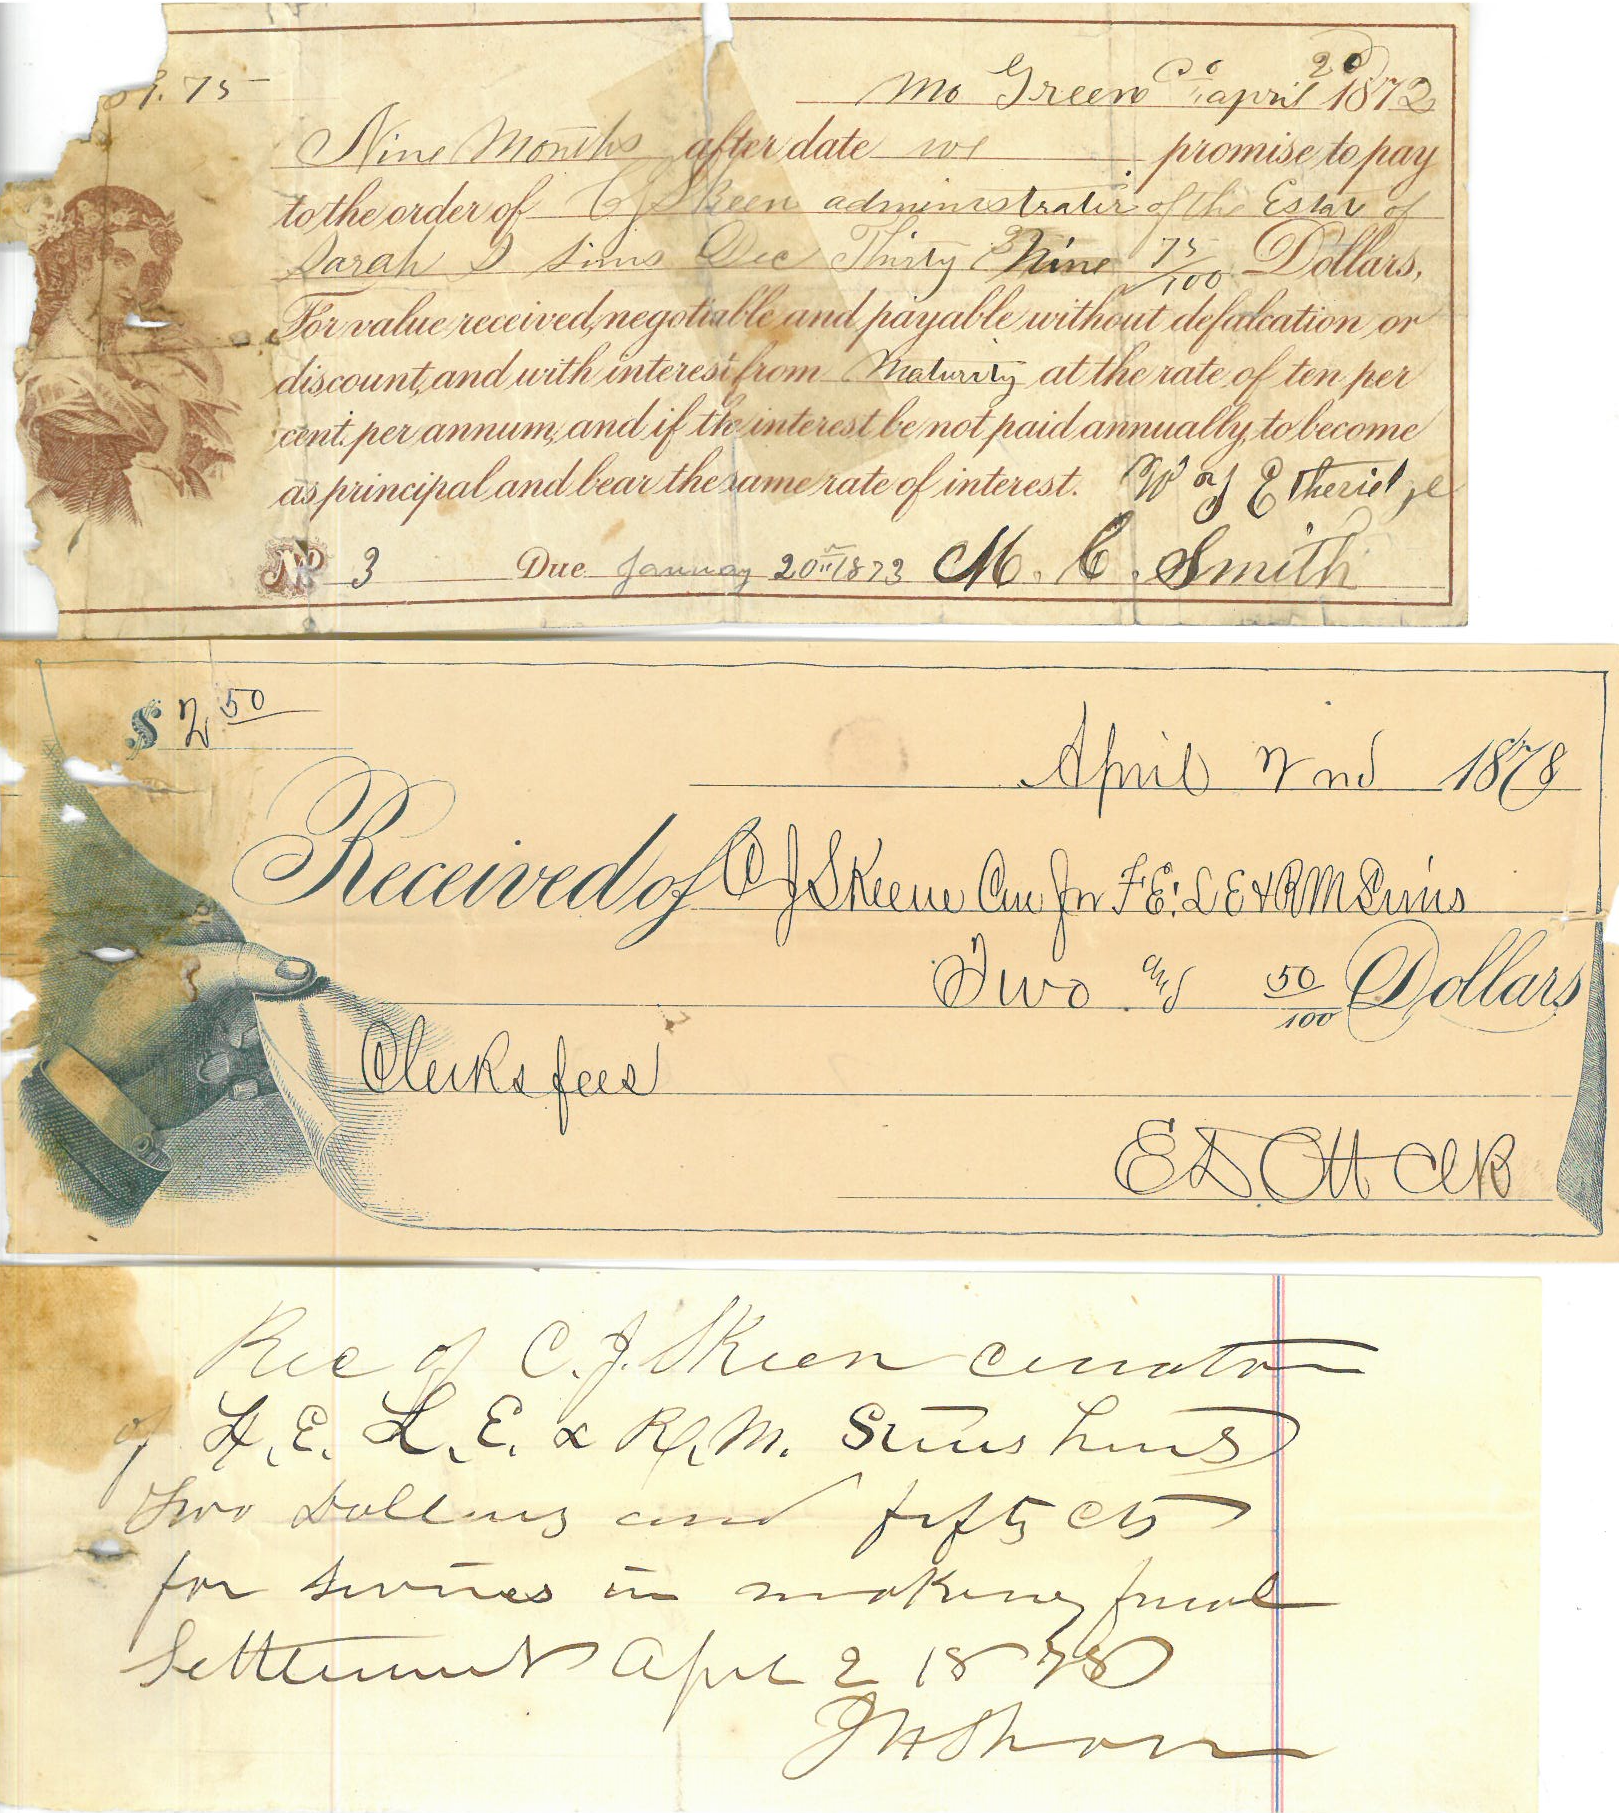 9.75
Mo Green Co april 20 1872
Nine Months after date we promise to pay
to the order of C J Skeen administrater of the Estat of
Sarah D Sims Dec Thirty Nine 75/100 Dollars,
For value received, negotiable and payable without defalcation or
discount, and with interest from Maturity at the rate of ten per
cent. per annum, and if the interest be not paid annually, to become
as principal and bear the same rate of interest. W J Etheridge
No 3 Due January 20th 1873 M. C. Smith
$ 2 50
April 2nd 1878
Received of C J Skeene Cur for F E. L E & R M Sims
Two and 50/100 Dollars
Clerks fees
E D Ott Clk
Rec of C. J. Skeen curator
of F. E. L. E. & R. M. Sims
Two Dollars and fifty cts
for services in making final
Settlement Apl 2 1878